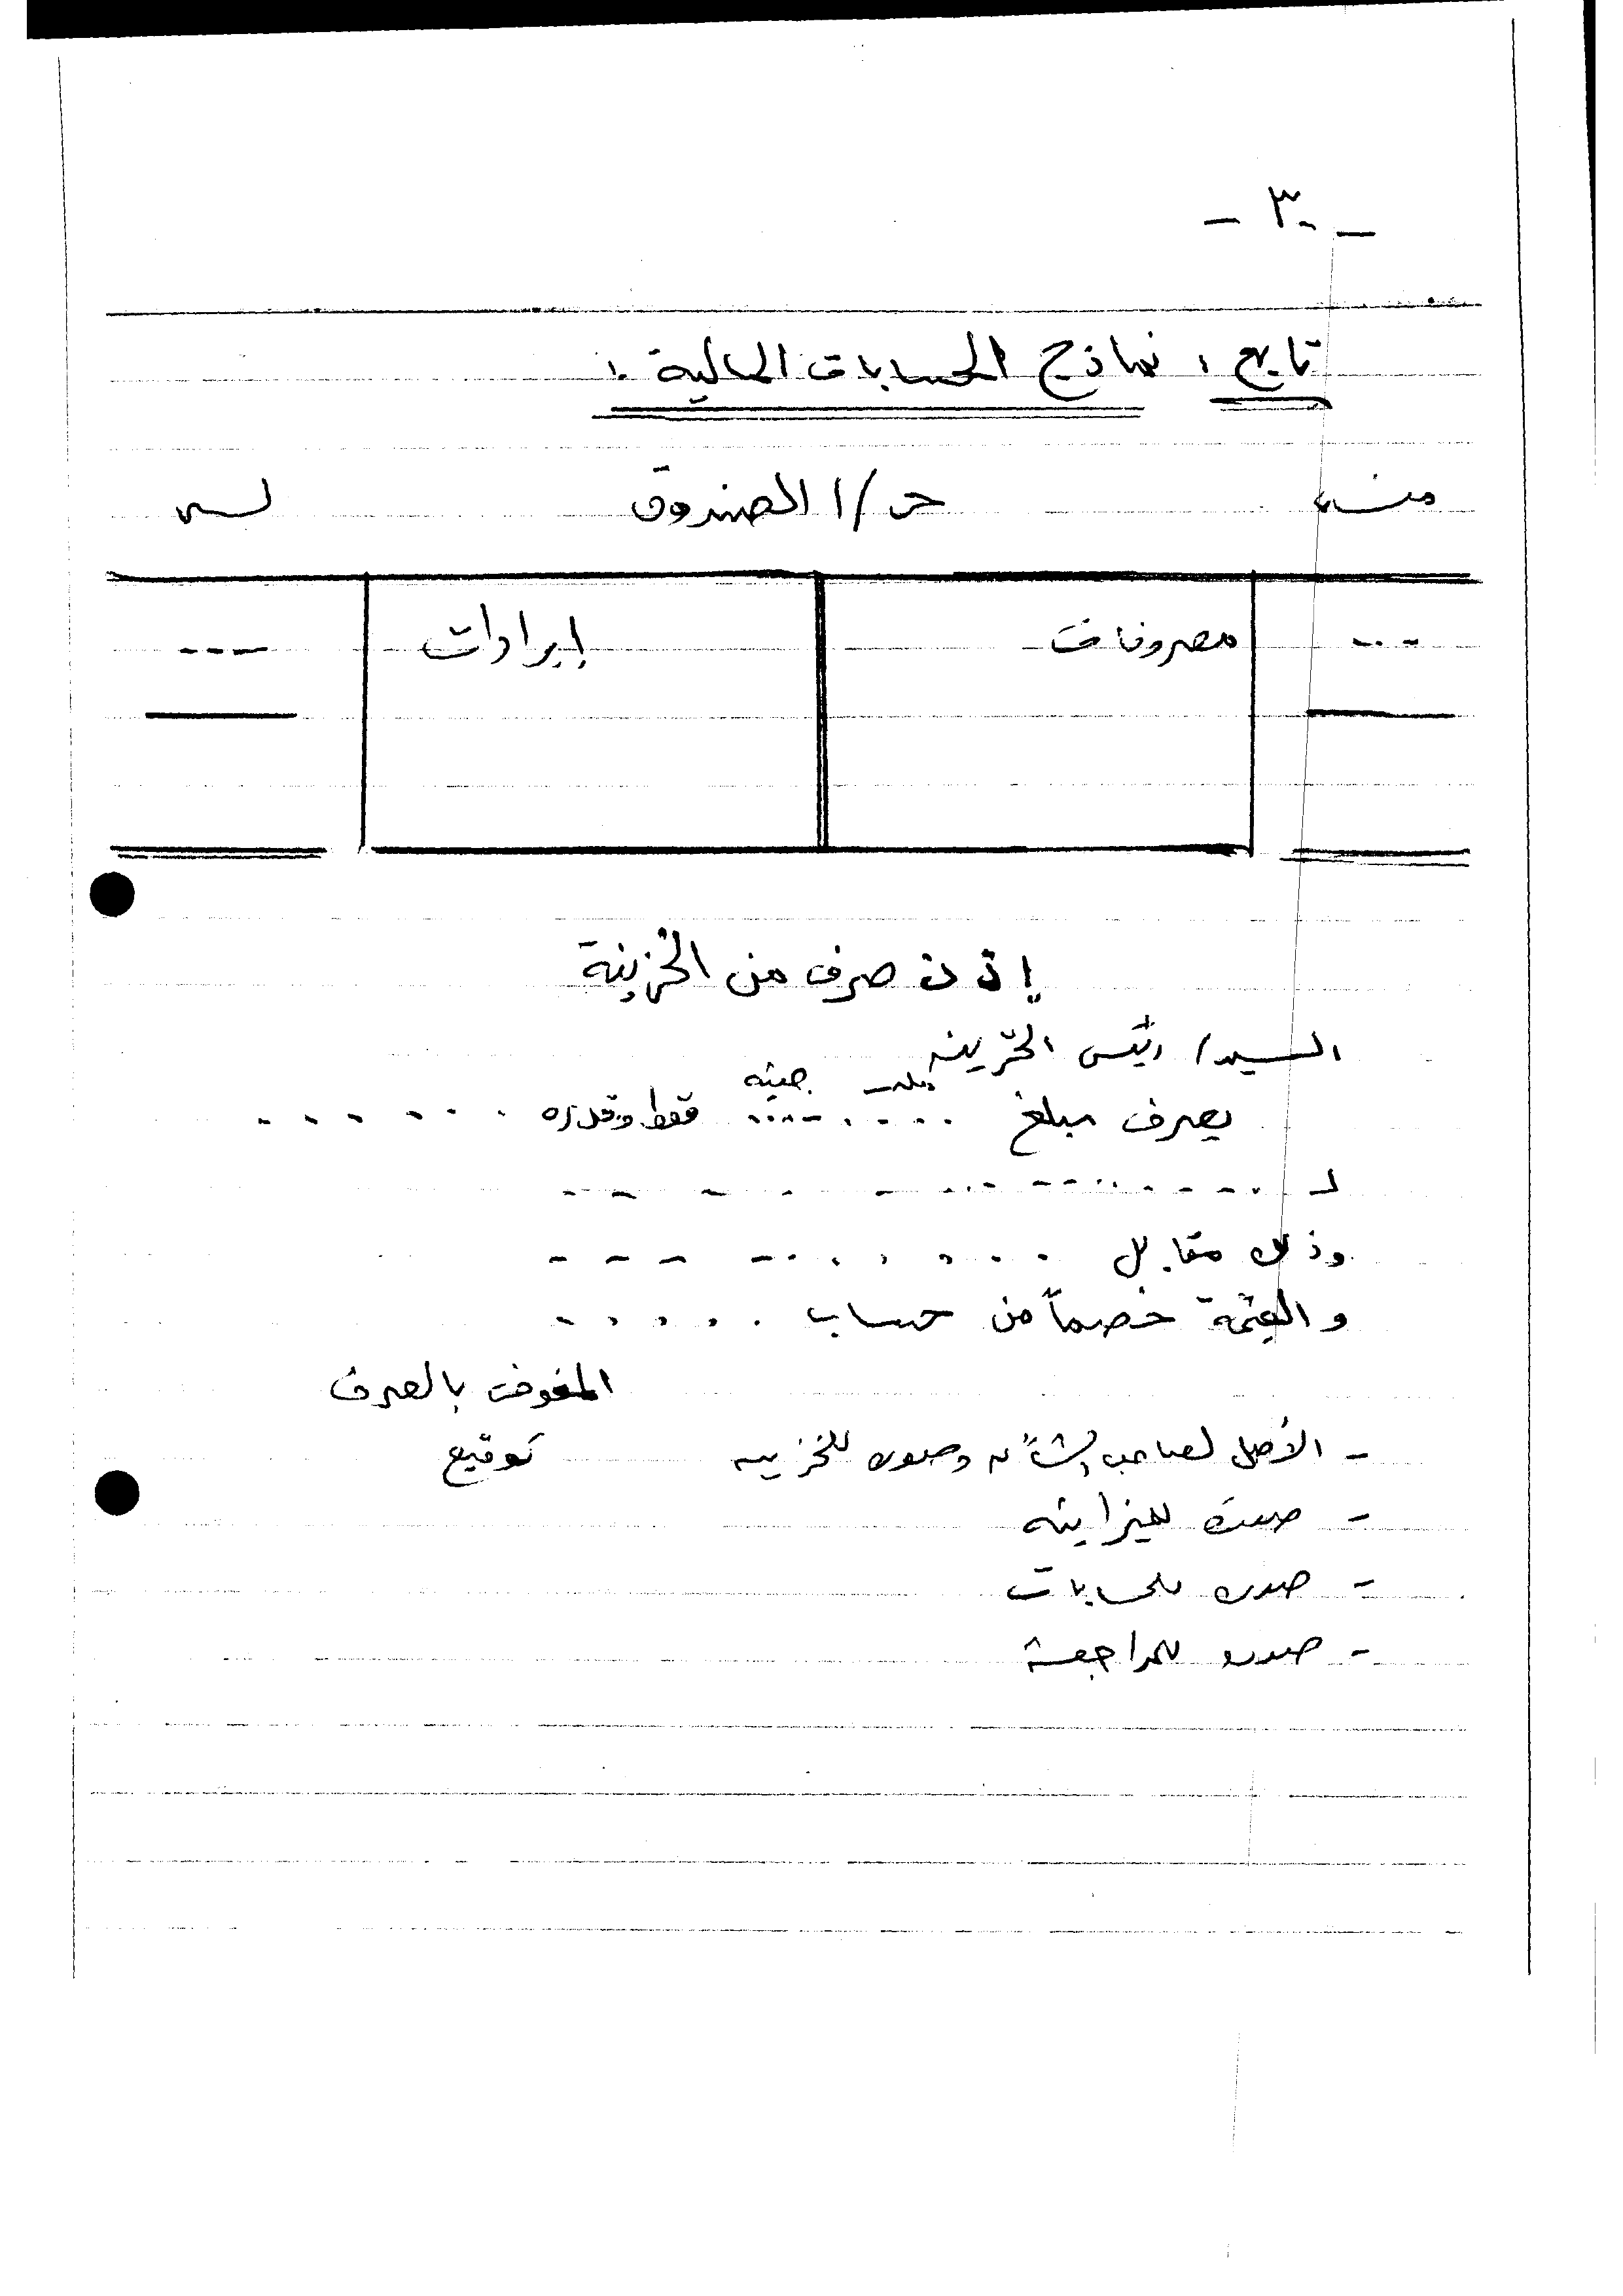 - ٣٠ -
تابع : نماذج الحسابات المالية :
منه ح/ الصندوق له
--- مصروفات إيرادات ---
إذن صرف من الخزينة
السيد / رئيس الخزينه
مليم جنيه
يصرف مبلغ ........ فقط وقدره ......
لـ ..............
وذلك مقابل ...........
والقيمة خصماً من حساب .....
المفوض بالصرف
- الأصل لصاحب الشأن وصوره للخزينه توقيع
- صوره للميزانيه
- صوره للحسابات
- صوره للمراجعة